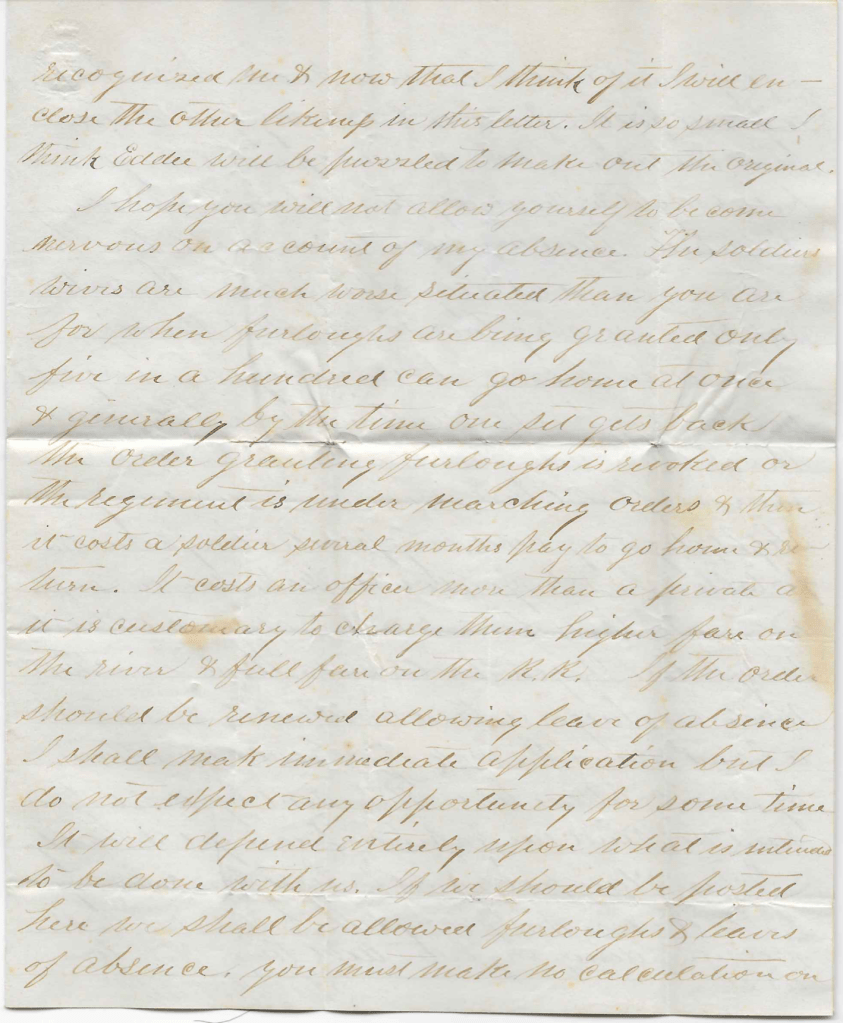 recognized me & now that I think of it I will en-
close the other likeness in this letter. It is so small I
think Eddie will be puzzled to make out the original.
I hope you will not allow yourself to become
nervous on account of my absence. The soldiers
wives are much worse situated than you are
for when furloughs are being granted only
five in a hundred can go home at once
& generally by the time one set gets back
the order granting furloughs is revoked or
the regiment is under marching orders & then
it costs a soldier several months pay to go home & re
turn. It costs an officer more than a private as
it is customary to charge them higher fare on
the river & full fare on the R.R. If the order
should be renewed allowing leave of absence
I shall make immediate application but I
do not expect any opportunity for some time
It will depend entirely upon what is intended
to be done with us. If we should be posted
here we shall be allowed furloughs & leaves
of absence. you must make no calculation on